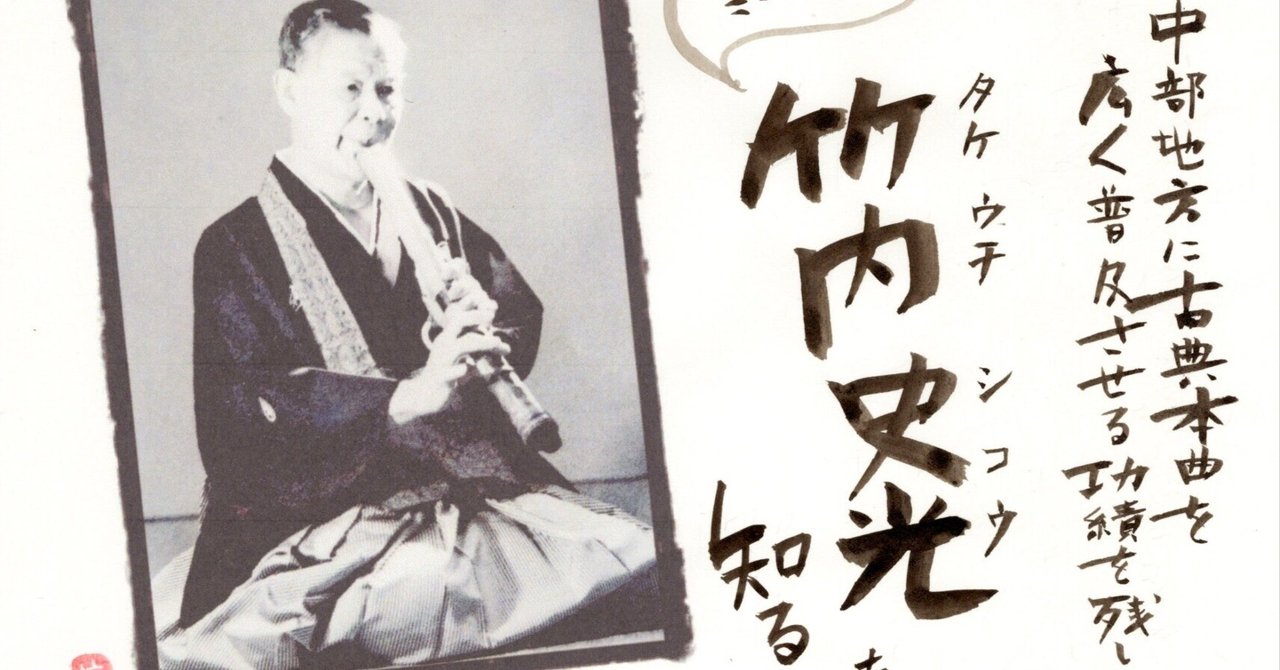 中部地方に古典本曲を
広く普及させる功績を残し
タケウチ シコウ
竹内史光
知る